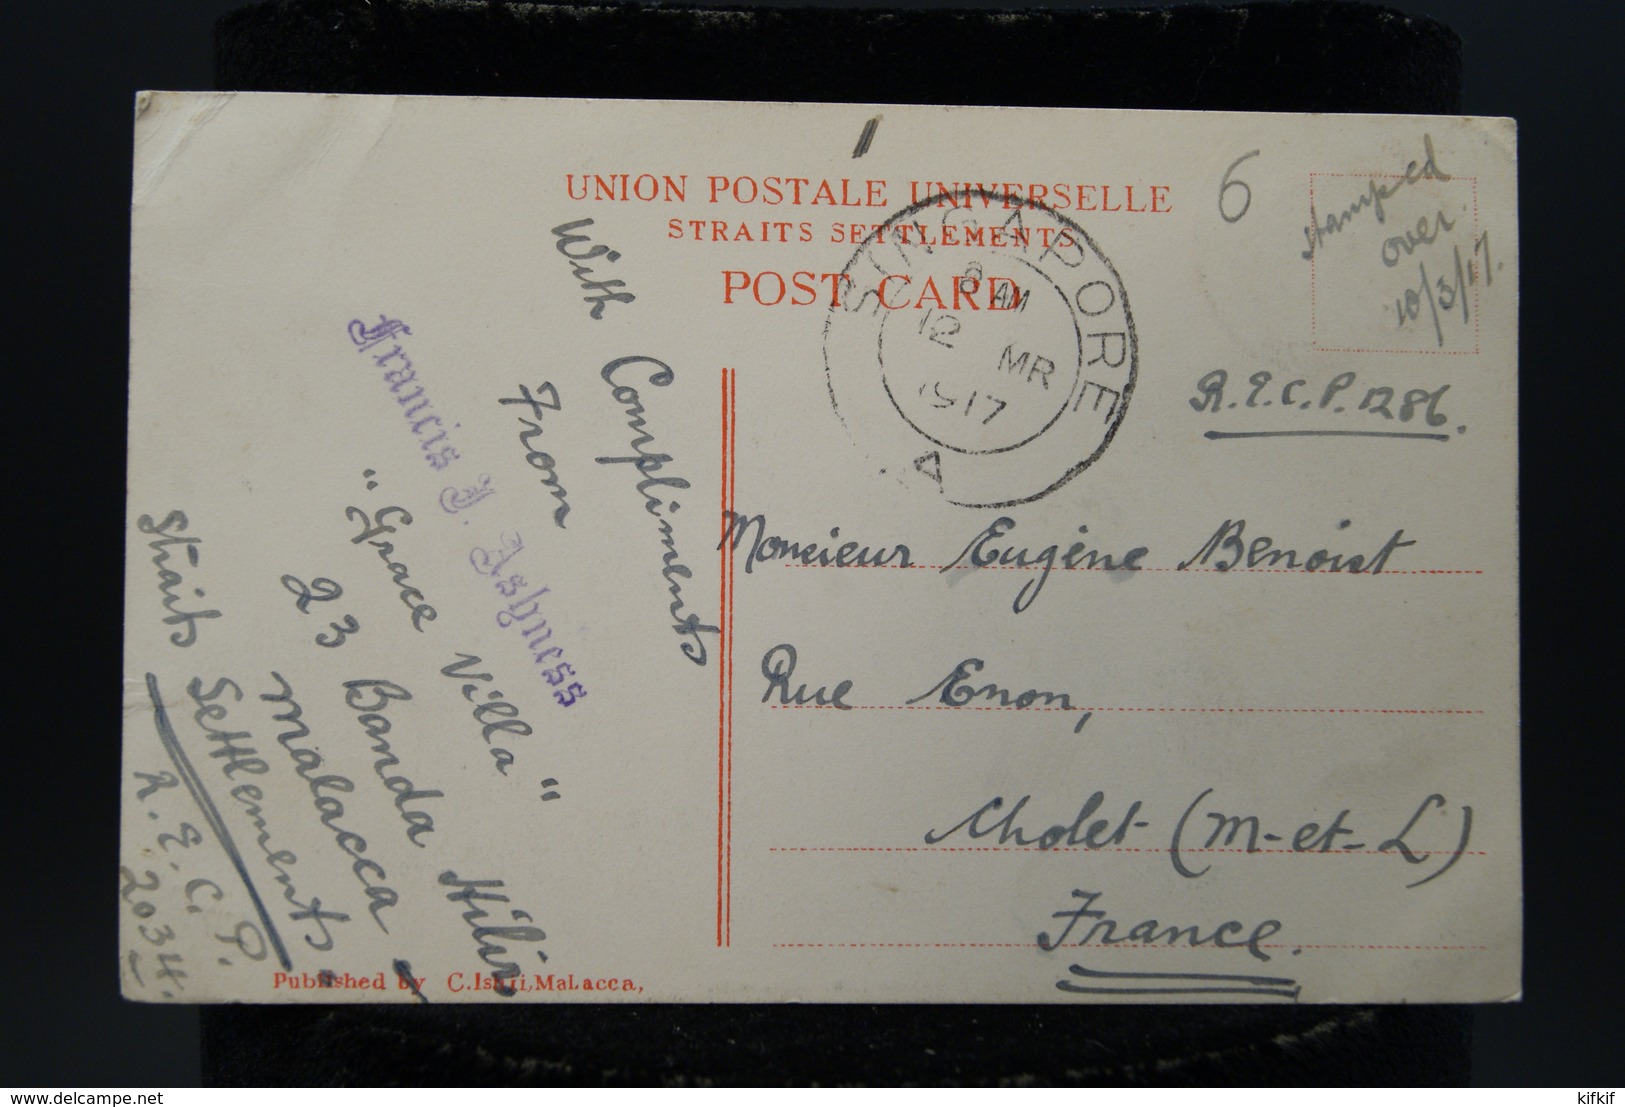 UNION POSTALE UNIVERSELLE
STRAITS SETTLEMENTS
POST CARD
6
Stamped
over
10/3/17.
SINGAPORE
8 AM
12 MR
1917
A
R.E.C.P. 1286.
With Compliments
From
Francis J. Ashness
"Grace Villa"
23 Banda Hilir
Malacca
Straits Settlements.
R.E.C.P.
2034.
Monsieur Eugène Benoist
Rue Enon,
Cholet (M-et-L)
France.
Published by C.Ishii, Malacca,
delcampe.net
kifkif